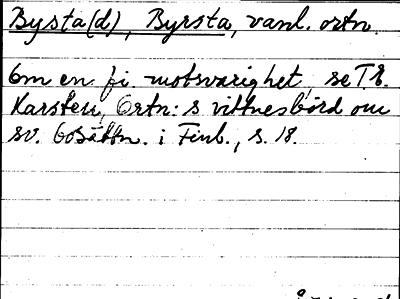 Bysta(d), Byrsta, vanl. ortn.
Om en fi. motsvarighet, se T.E.
Karsten, Ortn:s vittnesbörd om
sv. bosättn. i Finl., s. 18.